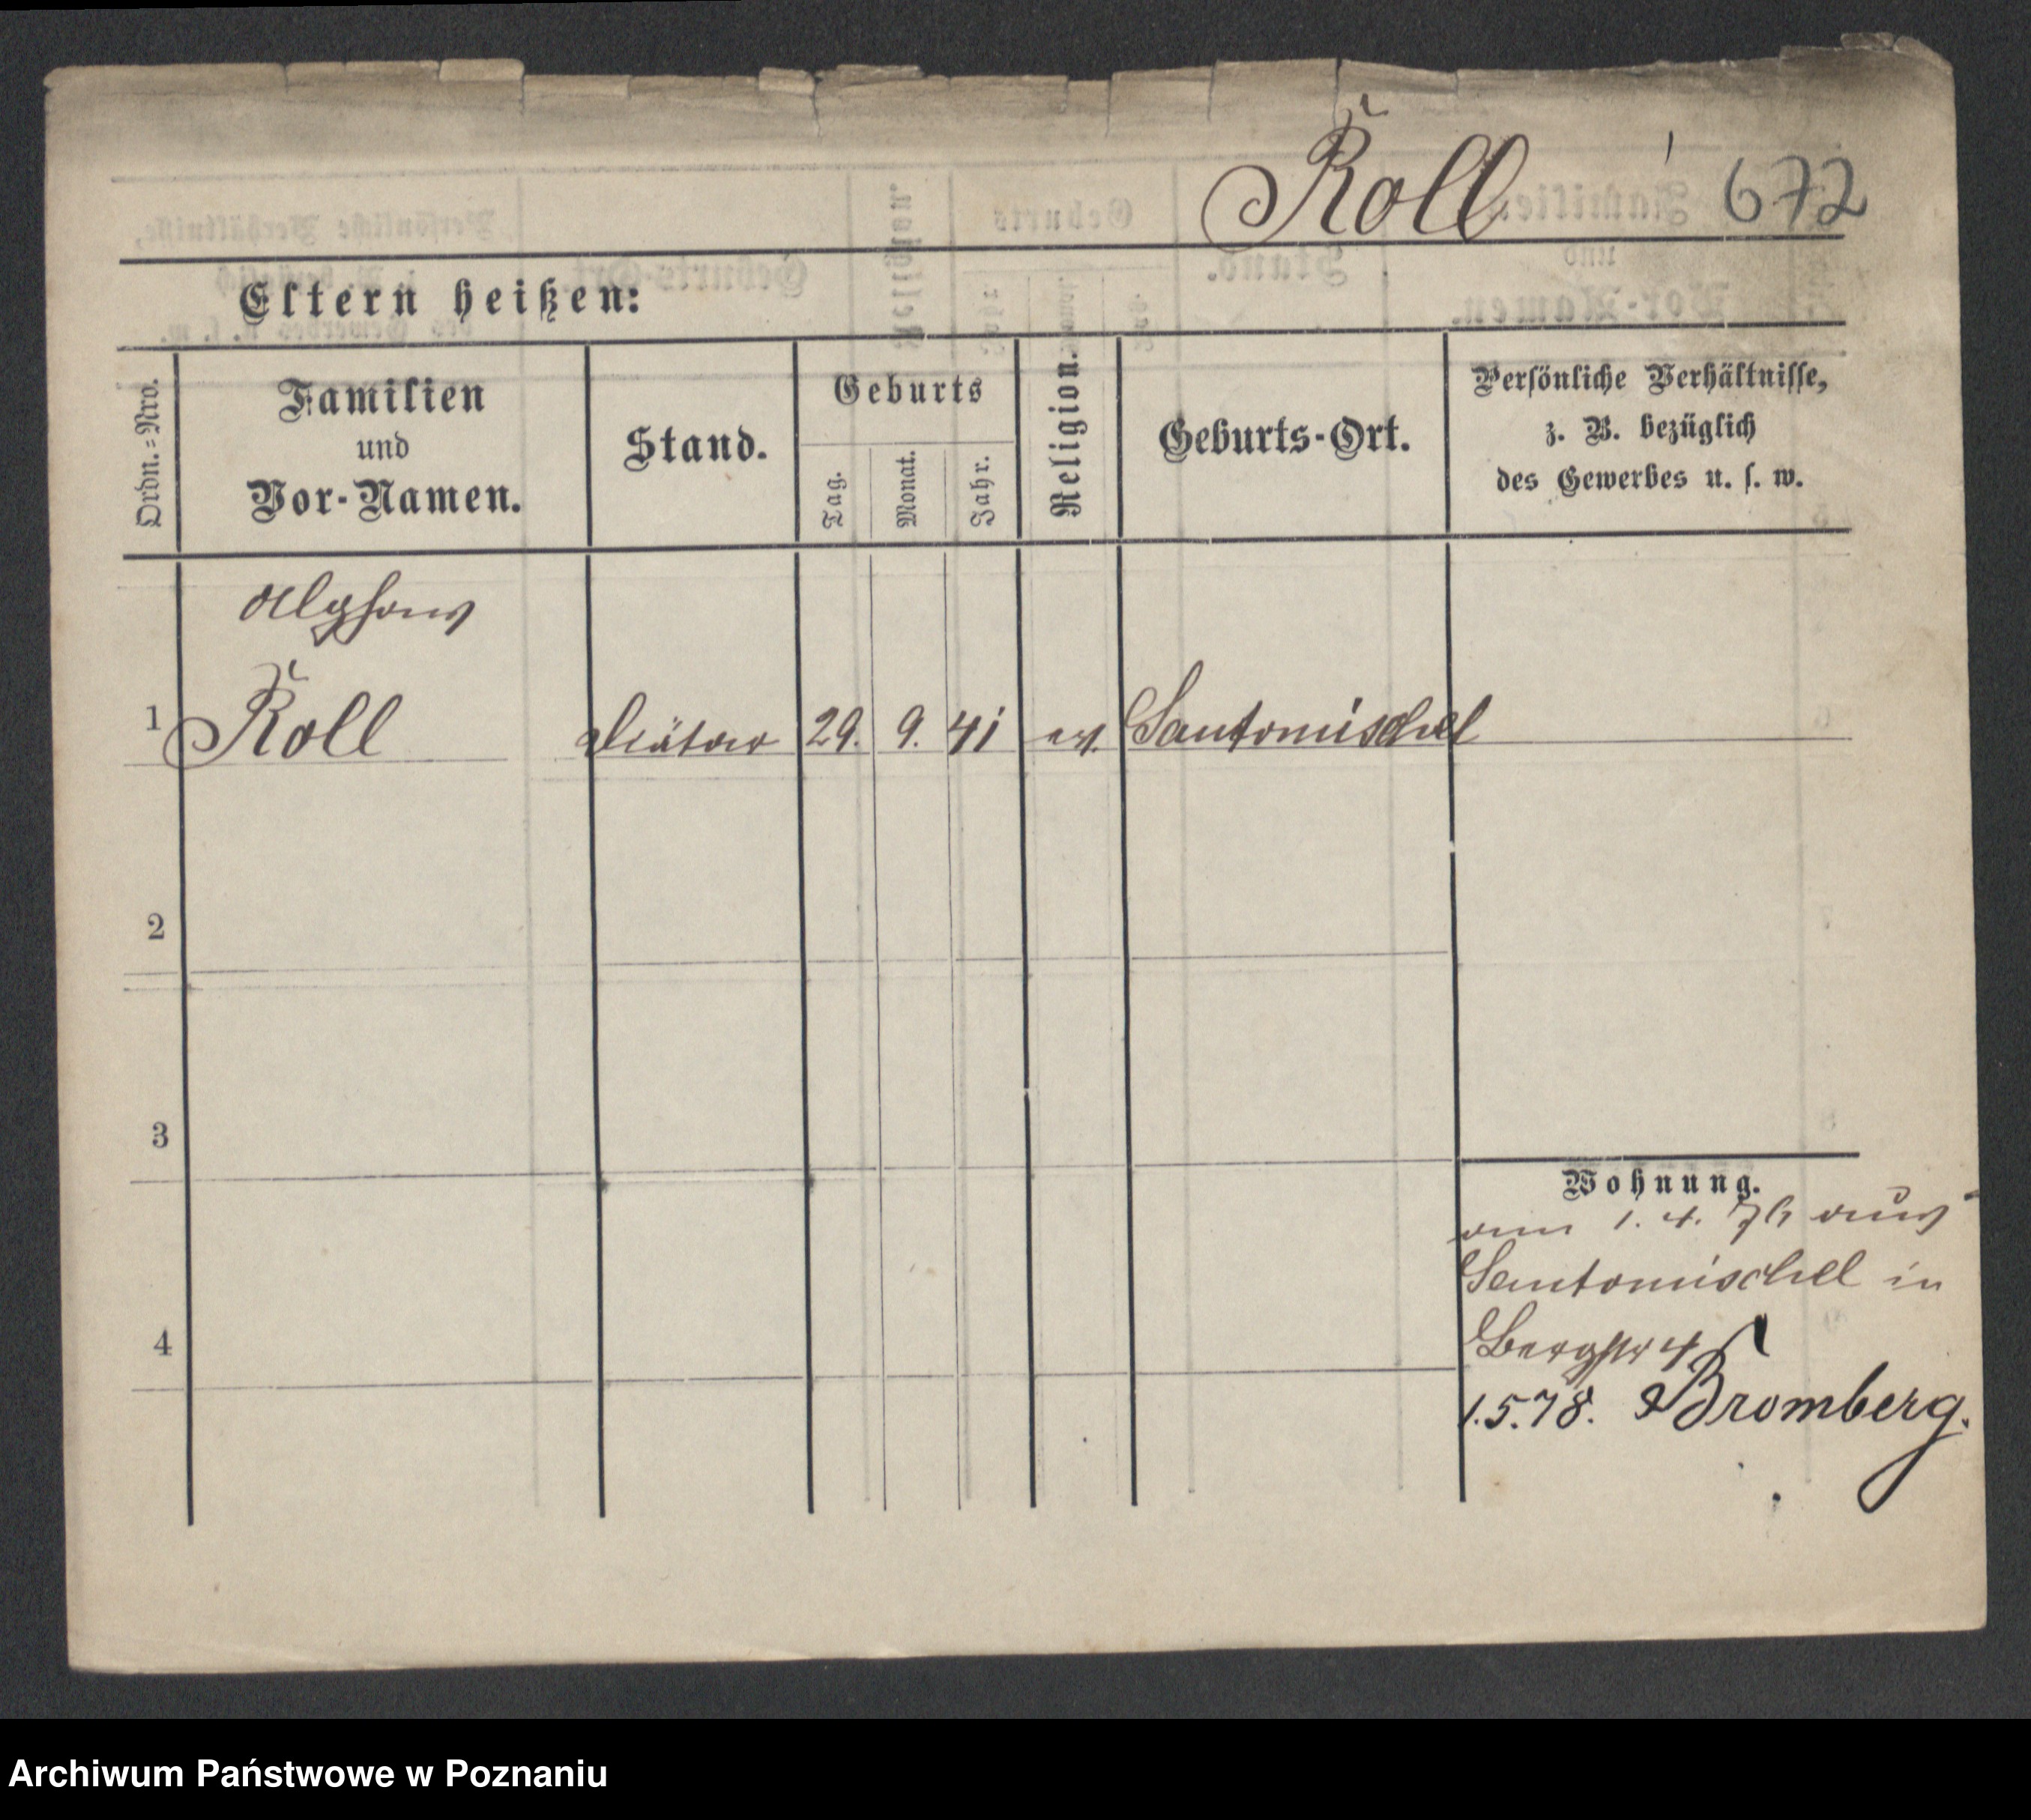 Roll 672
Eltern heißen:
Ordn.=Nro.
Familien
und
Vor-Namen.
Stand.
Geburts
Tag.
Monat.
Jahr.
Religion.
Geburts-Ort.
Persönliche Verhältnisse,
z. B. bezüglich
des Gewerbes u. s. w.
Alphons
1 Roll Diätar 29. 9. 41 ev. Santomischel
2
3
4
Wohnung.
am 1. 4. 76 aus
Santomischel in
Bergstr 4
1.5.78. Bromberg.
Archiwum Państwowe w Poznaniu